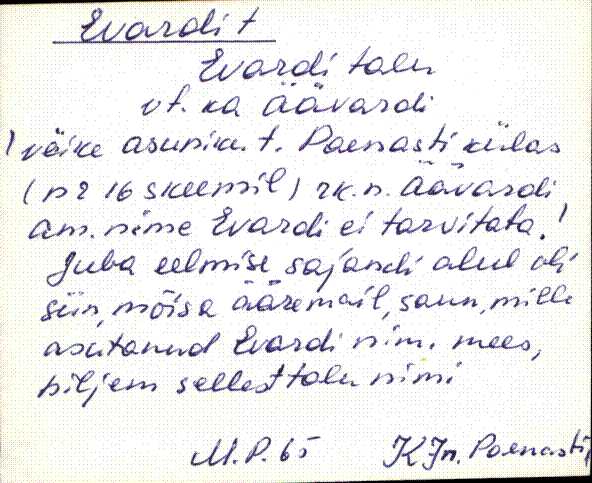 Evardi t
Evardi talu
vt. ka Äävardi
! väike asuniku t. Paenasti külas
(nr 16 skeemil) rk. n. Äävardi
am. nime Evardi ei tarvitata. !
Juba eelmise sajandi alul oli
siin, mõisa ääremail, saun, mille
asutanud Evardi nim. mees,
hiljem sellest talu nimi
M.P. 65 KJn. Paenasti,